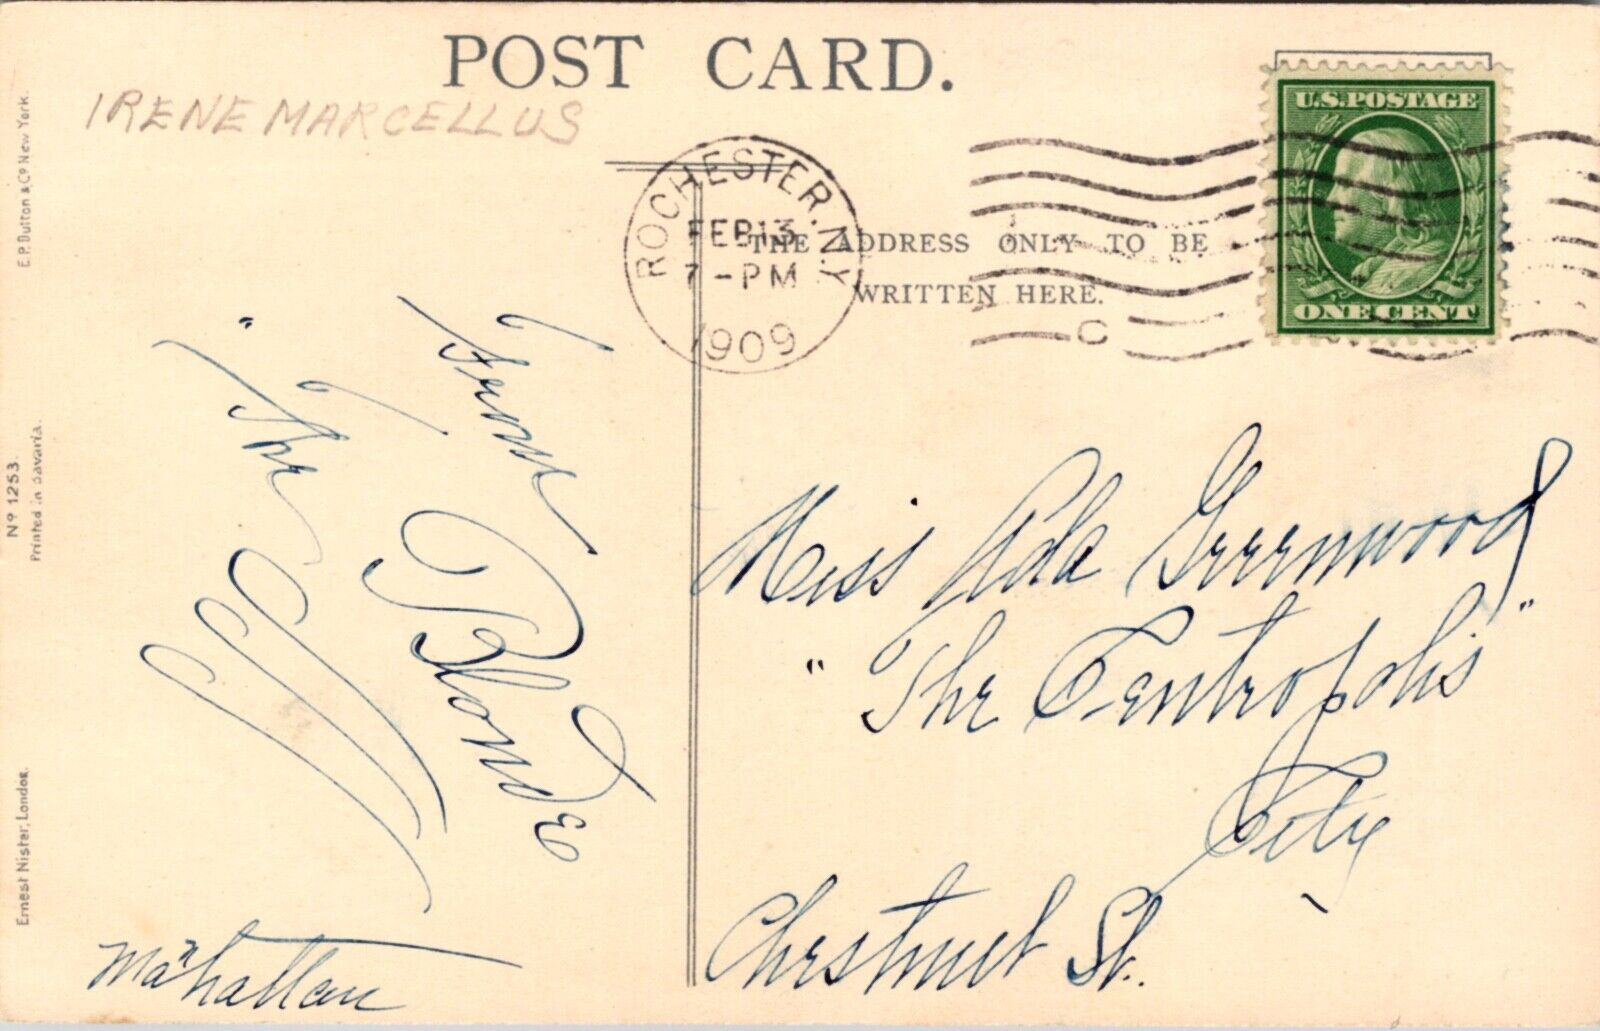 POST CARD.
IRENE MARCELLUS
E.P. Dutton & Co New York.
No 1253.
Printed in Bavaria.
Ernest Nister, London.
ROCHESTER. N.Y.
FEB 13
7-PM
1909
C
U.S. POSTAGE
ONE CENT
THE ADDRESS ONLY TO BE
WRITTEN HERE.
From
"The
Blonde
Manhattan
Miss Ada Greenwood
"The Centropolis"
City
Chestnut St.